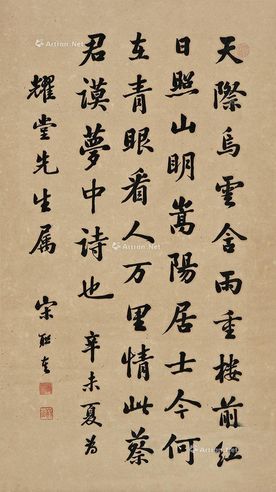 天際烏雲含雨重樓前紅
日照山明嵩陽居士今何
在青眼看人万里情此蔡
君謨夢中詩也 辛未夏為
耀堂先生属 宋聯奎
Artron.Net